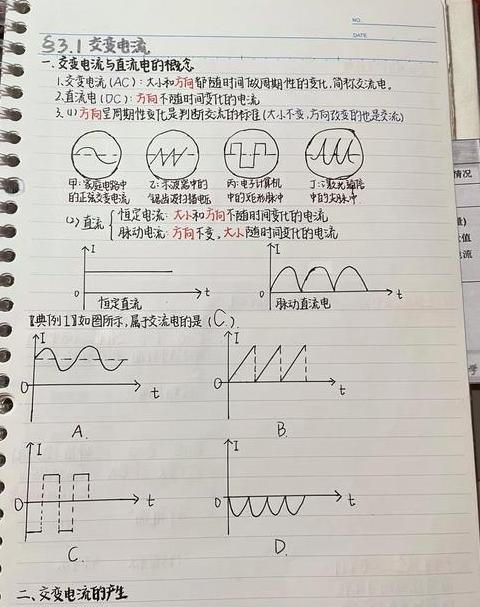 NO.
DATE
§3.1 交变电流
一、交变电流与直流电的概念
1.交变电流(AC):大小和方向都随时间做周期性的变化,简称交流电。
2.直流电(DC):方向不随时间变化的电流
3.(1)方向呈周期性变化是判断交流的标准(大小不变,方向改变的也是交流)
甲:家庭电路中的正弦交变电流
乙:示波器中的锯齿波扫描电压
丙:电子计算机中的矩形脉冲
丁:激光通信中的尖脉冲
(2)直流
恒定电流:大小和方向不随时间变化的电流
脉动电流:方向不变,大小随时间变化的电流
I
0
t
恒定直流
I
0
t
脉动直流电
【典例1】如图所示,属于交流电的是(C).
I
0
t
A.
I
0
t
B.
I
0
t
C.
I
0
t
D.
二、交变电流的产生
情况
值
流